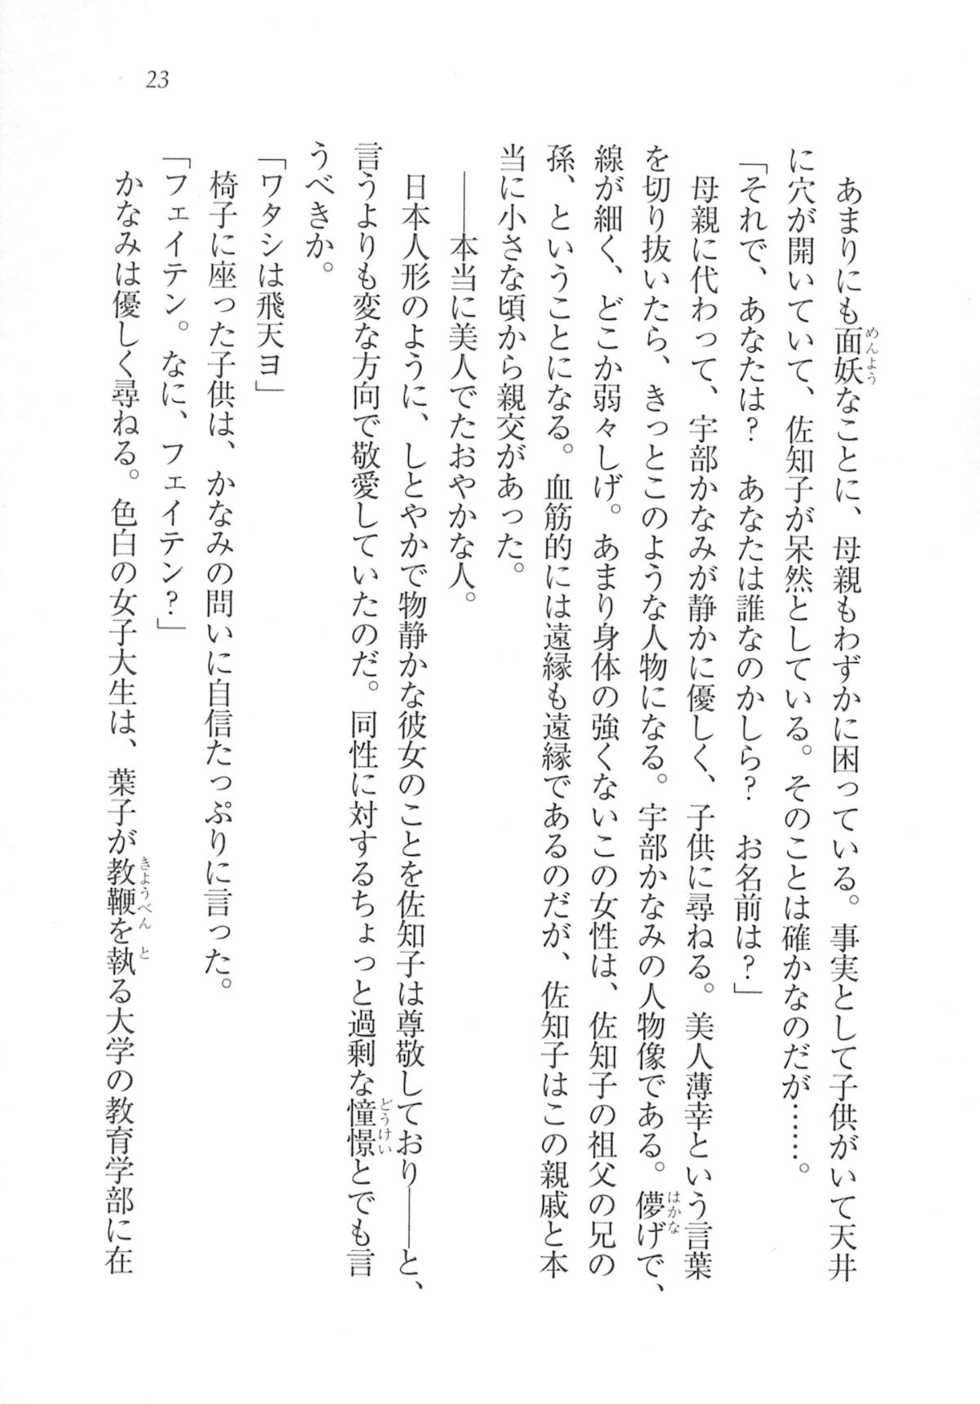 23
あまりにも面妖なことに、母親もわずかに困っている。事実として子供がいて天井
に穴が開いていて、佐知子が呆然としている。そのことは確かなのだが……。
「それで、あなたは？　あなたは誰なのかしら？　お名前は？」
母親に代わって、宇部かなみが静かに優しく、子供に尋ねる。美人薄幸という言葉
を切り抜いたら、きっとこのような人物になる。宇部かなみの人物像である。儚げで、
線が細く、どこか弱々しげ。あまり身体の強くないこの女性は、佐知子の祖父の兄の
孫、ということになる。血筋的には遠縁も遠縁であるのだが、佐知子はこの親戚と本
当に小さな頃から親交があった。
――本当に美人でたおやかな人。
日本人形のように、しとやかで物静かな彼女のことを佐知子は尊敬しており――と、
言うよりも変な方向で敬愛していたのだ。同性に対するちょっと過剰な憧憬とでも言
うべきか。
「ワタシは飛天ヨ」
椅子に座った子供は、かなみの問いに自信たっぷりに言った。
「フェイテン。なに、フェイテン？」
かなみは優しく尋ねる。色白の女子大生は、葉子が教鞭を執る大学の教育学部に在
めんよう
はかな
どうけい
きょうべん
と